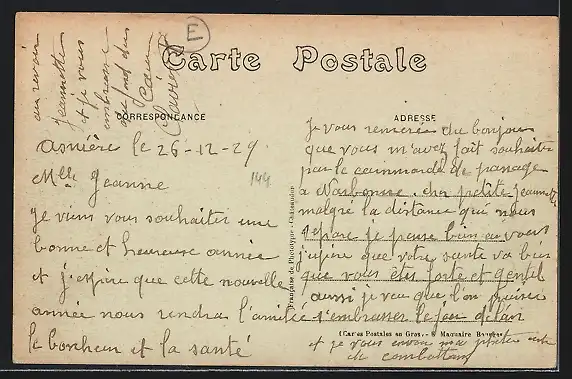 Carte Postale
CORRESPONDANCE
ADRESSE
E
Asnière le 26-12-29
Mlle Jeanne
149
je viens vous souhaiter une
bonne et heureuse année
et j'espère que cette nouvelle
année nous rendra l'amitié
le bonheur et la santé
je vous remercie du bonjour
que vous m'avez fait souhaiter
par le camarade de passage
a Narbonne. cher petite Jeannette
malgré la distance qui nous
separe je pense bien au vous
j'espère que votre sante va bien
que vous êtes forte et gentil
aussi je veu que l'on puisse
s'embrasser le jour de l'an
et je vous envoie ma photo
de combattant
au revoir
Jeannette
et je vous
embrasse
du fond du
cœur
Française de Phototypie - Châteaudun
(Cartes Postales en Gros. -